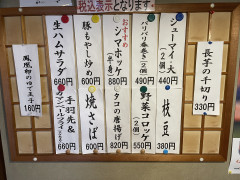 税込表示となります。
長芋の千切り
330円
シューマイ大
(2個)
440円
枝豆
380円
パリパリ春巻き(2個)
490円
野菜コロッケ
(2個)
550円
おすすめ
シマホッケ
(半身)
880円
タコの唐揚げ
820円
豚もやし炒め
600円
焼さば
600円
生ハムサラダ
680円
手羽先&
660円
鳳凰卵のゆで玉子
160円